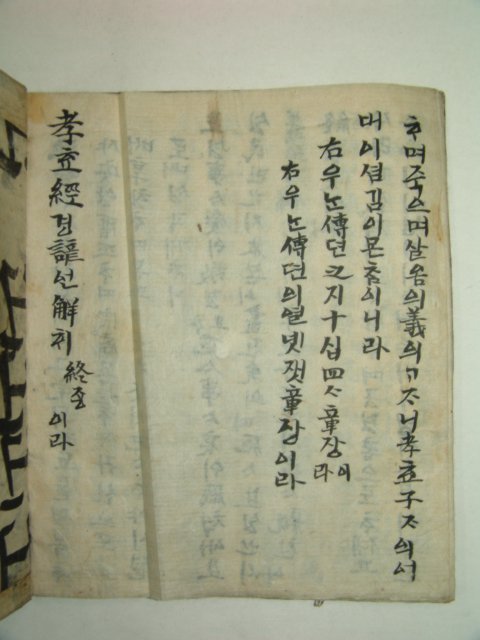 ᄒᆞ며죽으며살옴의義의ᄀᆞᄌᆞ니孝효子ᄌᆞ의어
매이셤김이ᄆᆞᄎᆞᆷ이니라
右우ᄂᆞᆫ傳뎐之지十십四ᄉᆞ章장이라
右우ᄂᆞᆫ傳뎐의열넷잿章장이라
孝효經경諺언解ᄒᆡ 終죵이라